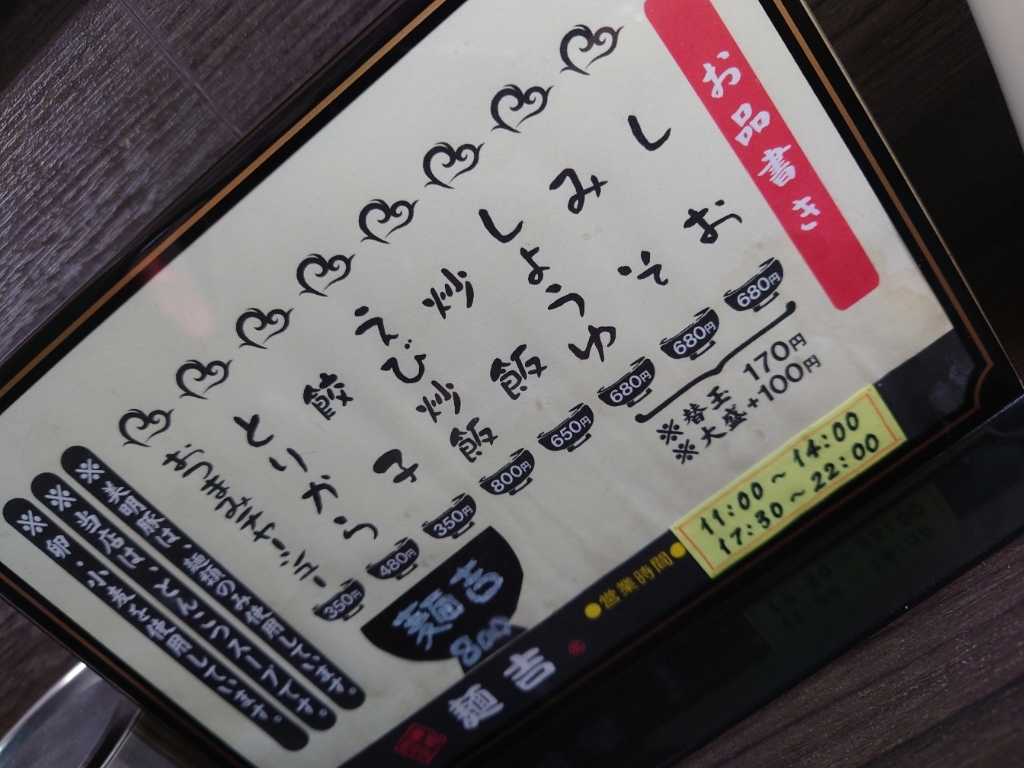 お品書き
しお 680円
みそ 680円
しょうゆ 680円
※替玉 170円
※大盛+100円
炒飯 650円
えび炒飯 800円
餃子 350円
とりから 480円
おつまみチャーシュー 350円
麺吉
800
※美明豚は、麺類のみ使用しています。
※当店は、とんこつスープです。
※卵・小麦を使用しています。
●営業時間●
11:00～14:00
17:30～22:00
麺吉